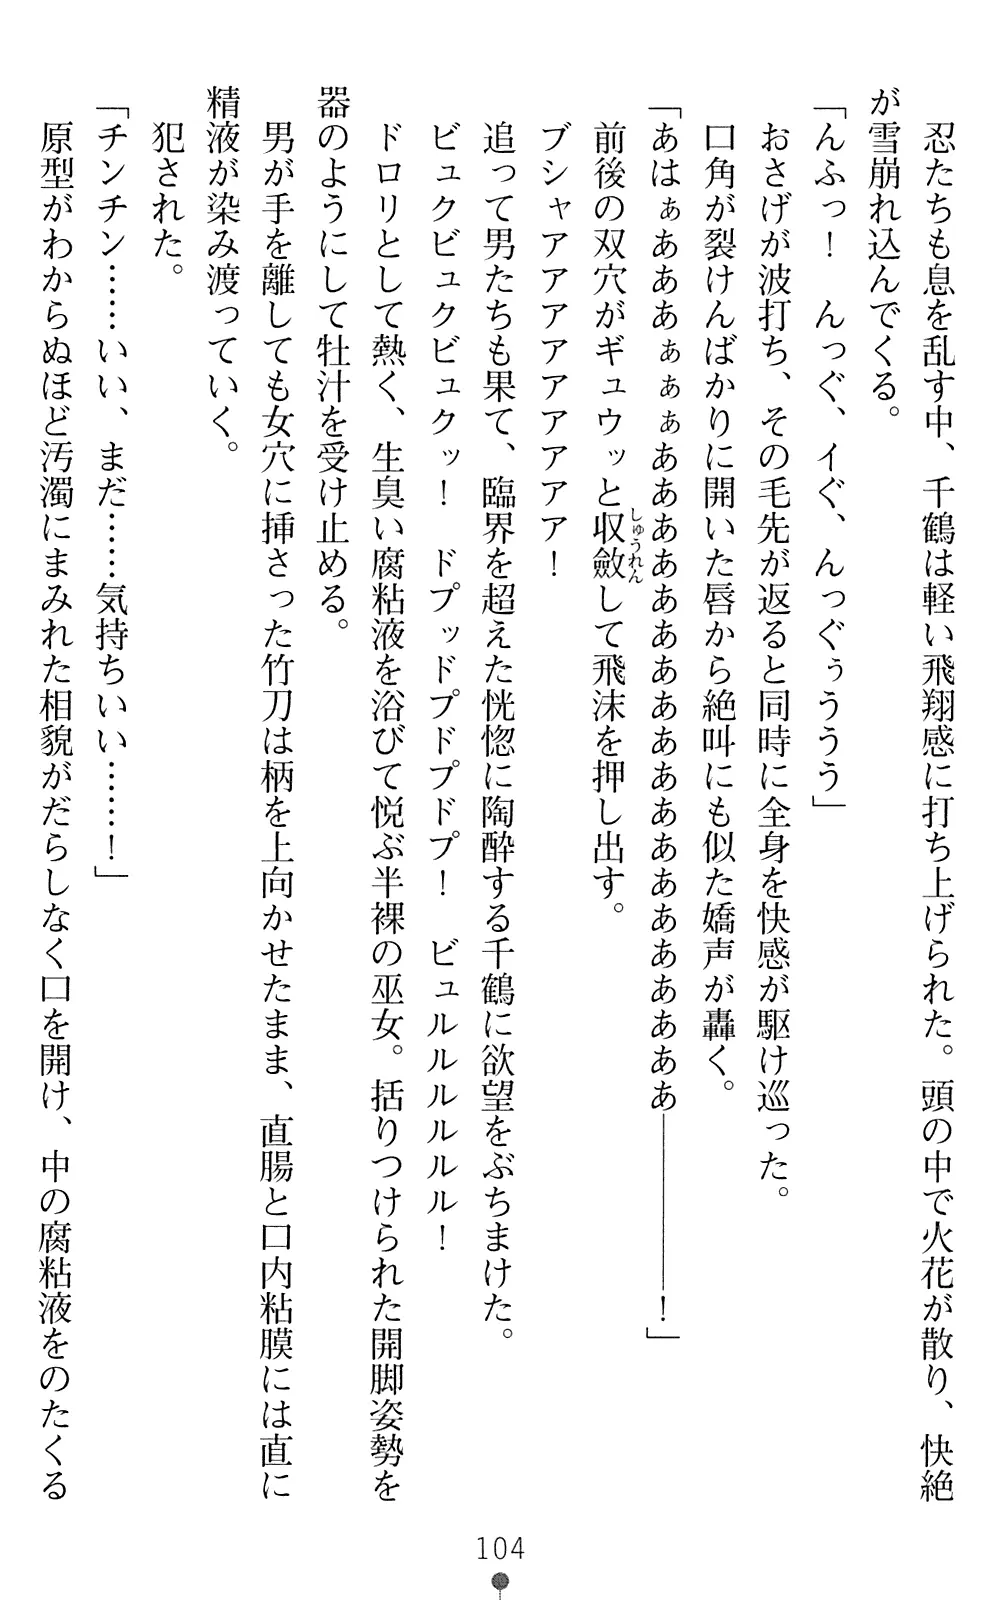 忍たちも息を乱す中、千鶴は軽い飛翔感に打ち上げられた。頭の中で火花が散り、快絶
が雪崩れ込んでくる。
「んふっ！　んっぐ、イぐ、んっぐぅううう」
おさげが波打ち、その毛先が返ると同時に全身を快感が駆け巡った。
口角が裂けんばかりに開いた唇から絶叫にも似た嬌声が轟く。
「あはぁああああぁぁぁあああああああああああああああああああ――――――！」
前後の双穴がギュウッと収斂して飛沫を押し出す。
しゅうれん
ブシャアアアアアアアアア！
追って男たちも果て、臨界を超えた恍惚に陶酔する千鶴に欲望をぶちまけた。
ビュクビュクビュクッ！　ドプッドプドプドプ！　ビュルルルルルル！
ドロリとして熱く、生臭い腐粘液を浴びて悦ぶ半裸の巫女。括りつけられた開脚姿勢を
器のようにして牡汁を受け止める。
男が手を離しても女穴に挿さった竹刀は柄を上向かせたまま、直腸と口内粘膜には直に
精液が染み渡っていく。
犯された。
「チンチン……いい、まだ……気持ちいい……！」
原型がわからぬほど汚濁にまみれた相貌がだらしなく口を開け、中の腐粘液をのたくる
104